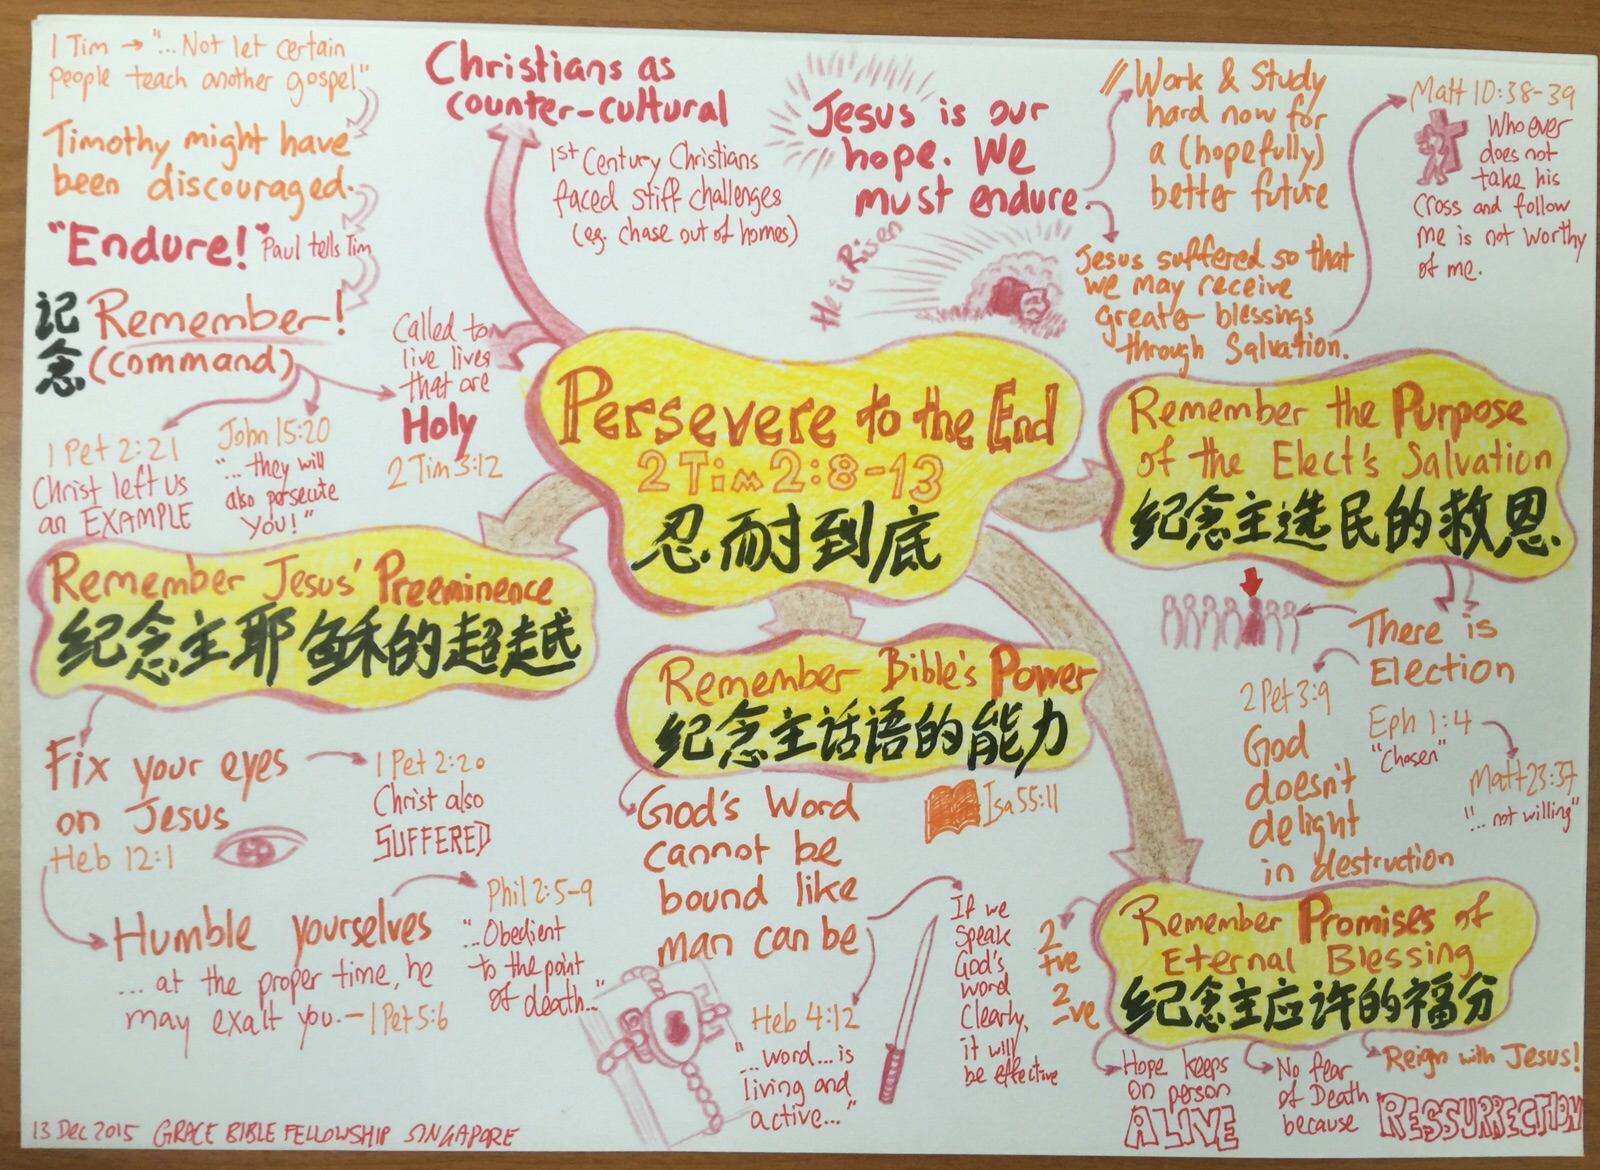 1 Tim → "... Not let certain
people teach another gospel"
Timothy might have
been discouraged.
"Endure!" Paul tells Tim
记
念
Remember!
(command)
1 Pet 2:21
Christ left us
an EXAMPLE
John 15:20
"... they will
also persecute
you!"
Called to
live lives
that are
Holy
2 Tim 3:12
Christians as
counter-cultural
1st Century Christians
faced stiff challenges
(eg. chase out of homes)
Jesus is our
hope. We
must endure.
He is Risen
// Work & Study
hard now for
a (hopefully)
better future
Jesus suffered so that
we may receive
greater blessings
through Salvation.
Matt 10:38-39
Whoever
does not
take his
cross and follow
me is not worthy
of me.
Persevere to the End
2 Tim 2:8-13
忍耐到底
Remember Jesus' Preeminence
纪念主耶稣的超越
Fix your eyes
on Jesus
Heb 12:1
1 Pet 2:20
Christ also
SUFFERED
Humble yourselves
... at the proper time, he
may exalt you. - 1 Pet 5:6
Phil 2:5-9
"...Obedient
to the point
of death..."
Remember Bible's Power
纪念主话语的能力
God's Word
cannot be
bound like
man can be
Isa 55:11
Heb 4:12
"...word... is
living and
active..."
If we
speak
God's
word
clearly,
it will
be effective
Remember the Purpose
of the Elect's Salvation
纪念主选民的救恩
There is
Election
2 Pet 3:9
God
doesn't
delight
in destruction
Eph 1:4
"Chosen"
Matt 23:37
"... not willing"
Remember Promises of
Eternal Blessing
纪念主应许的福分
2
+ve
2
-ve
Hope keeps
on person
ALIVE
No fear
of Death
because
RESSURRECTION
Reign with Jesus!
13 Dec 2015 GRACE BIBLE FELLOWSHIP SINGAPORE